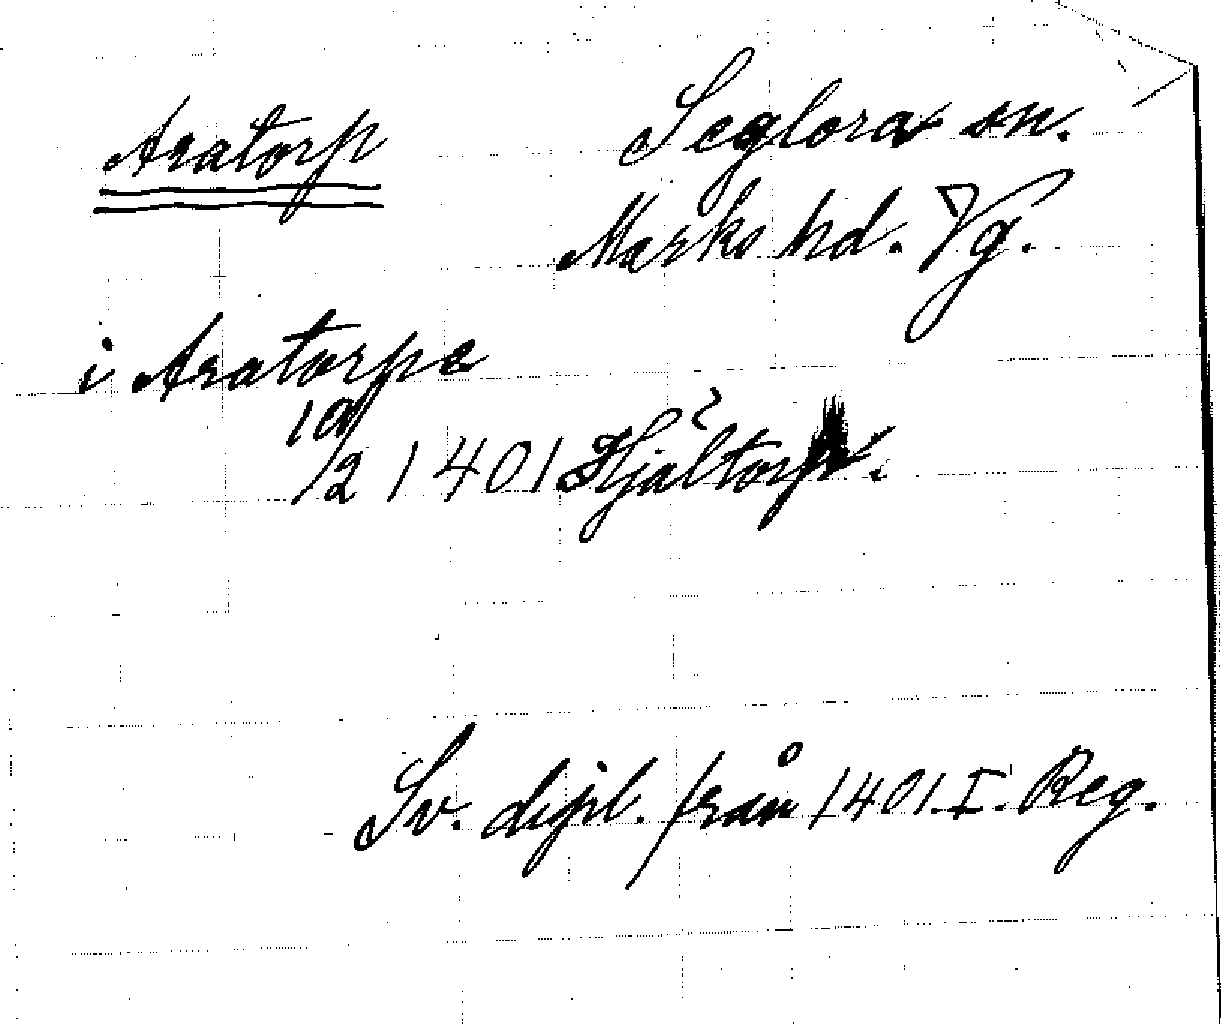 Aratorp
Seglora sn.
Marks hd. Vg.
i Aratorpe
10/2 1401 Hjältorp.
?
Sv. dipl. från 1401. I. Reg.